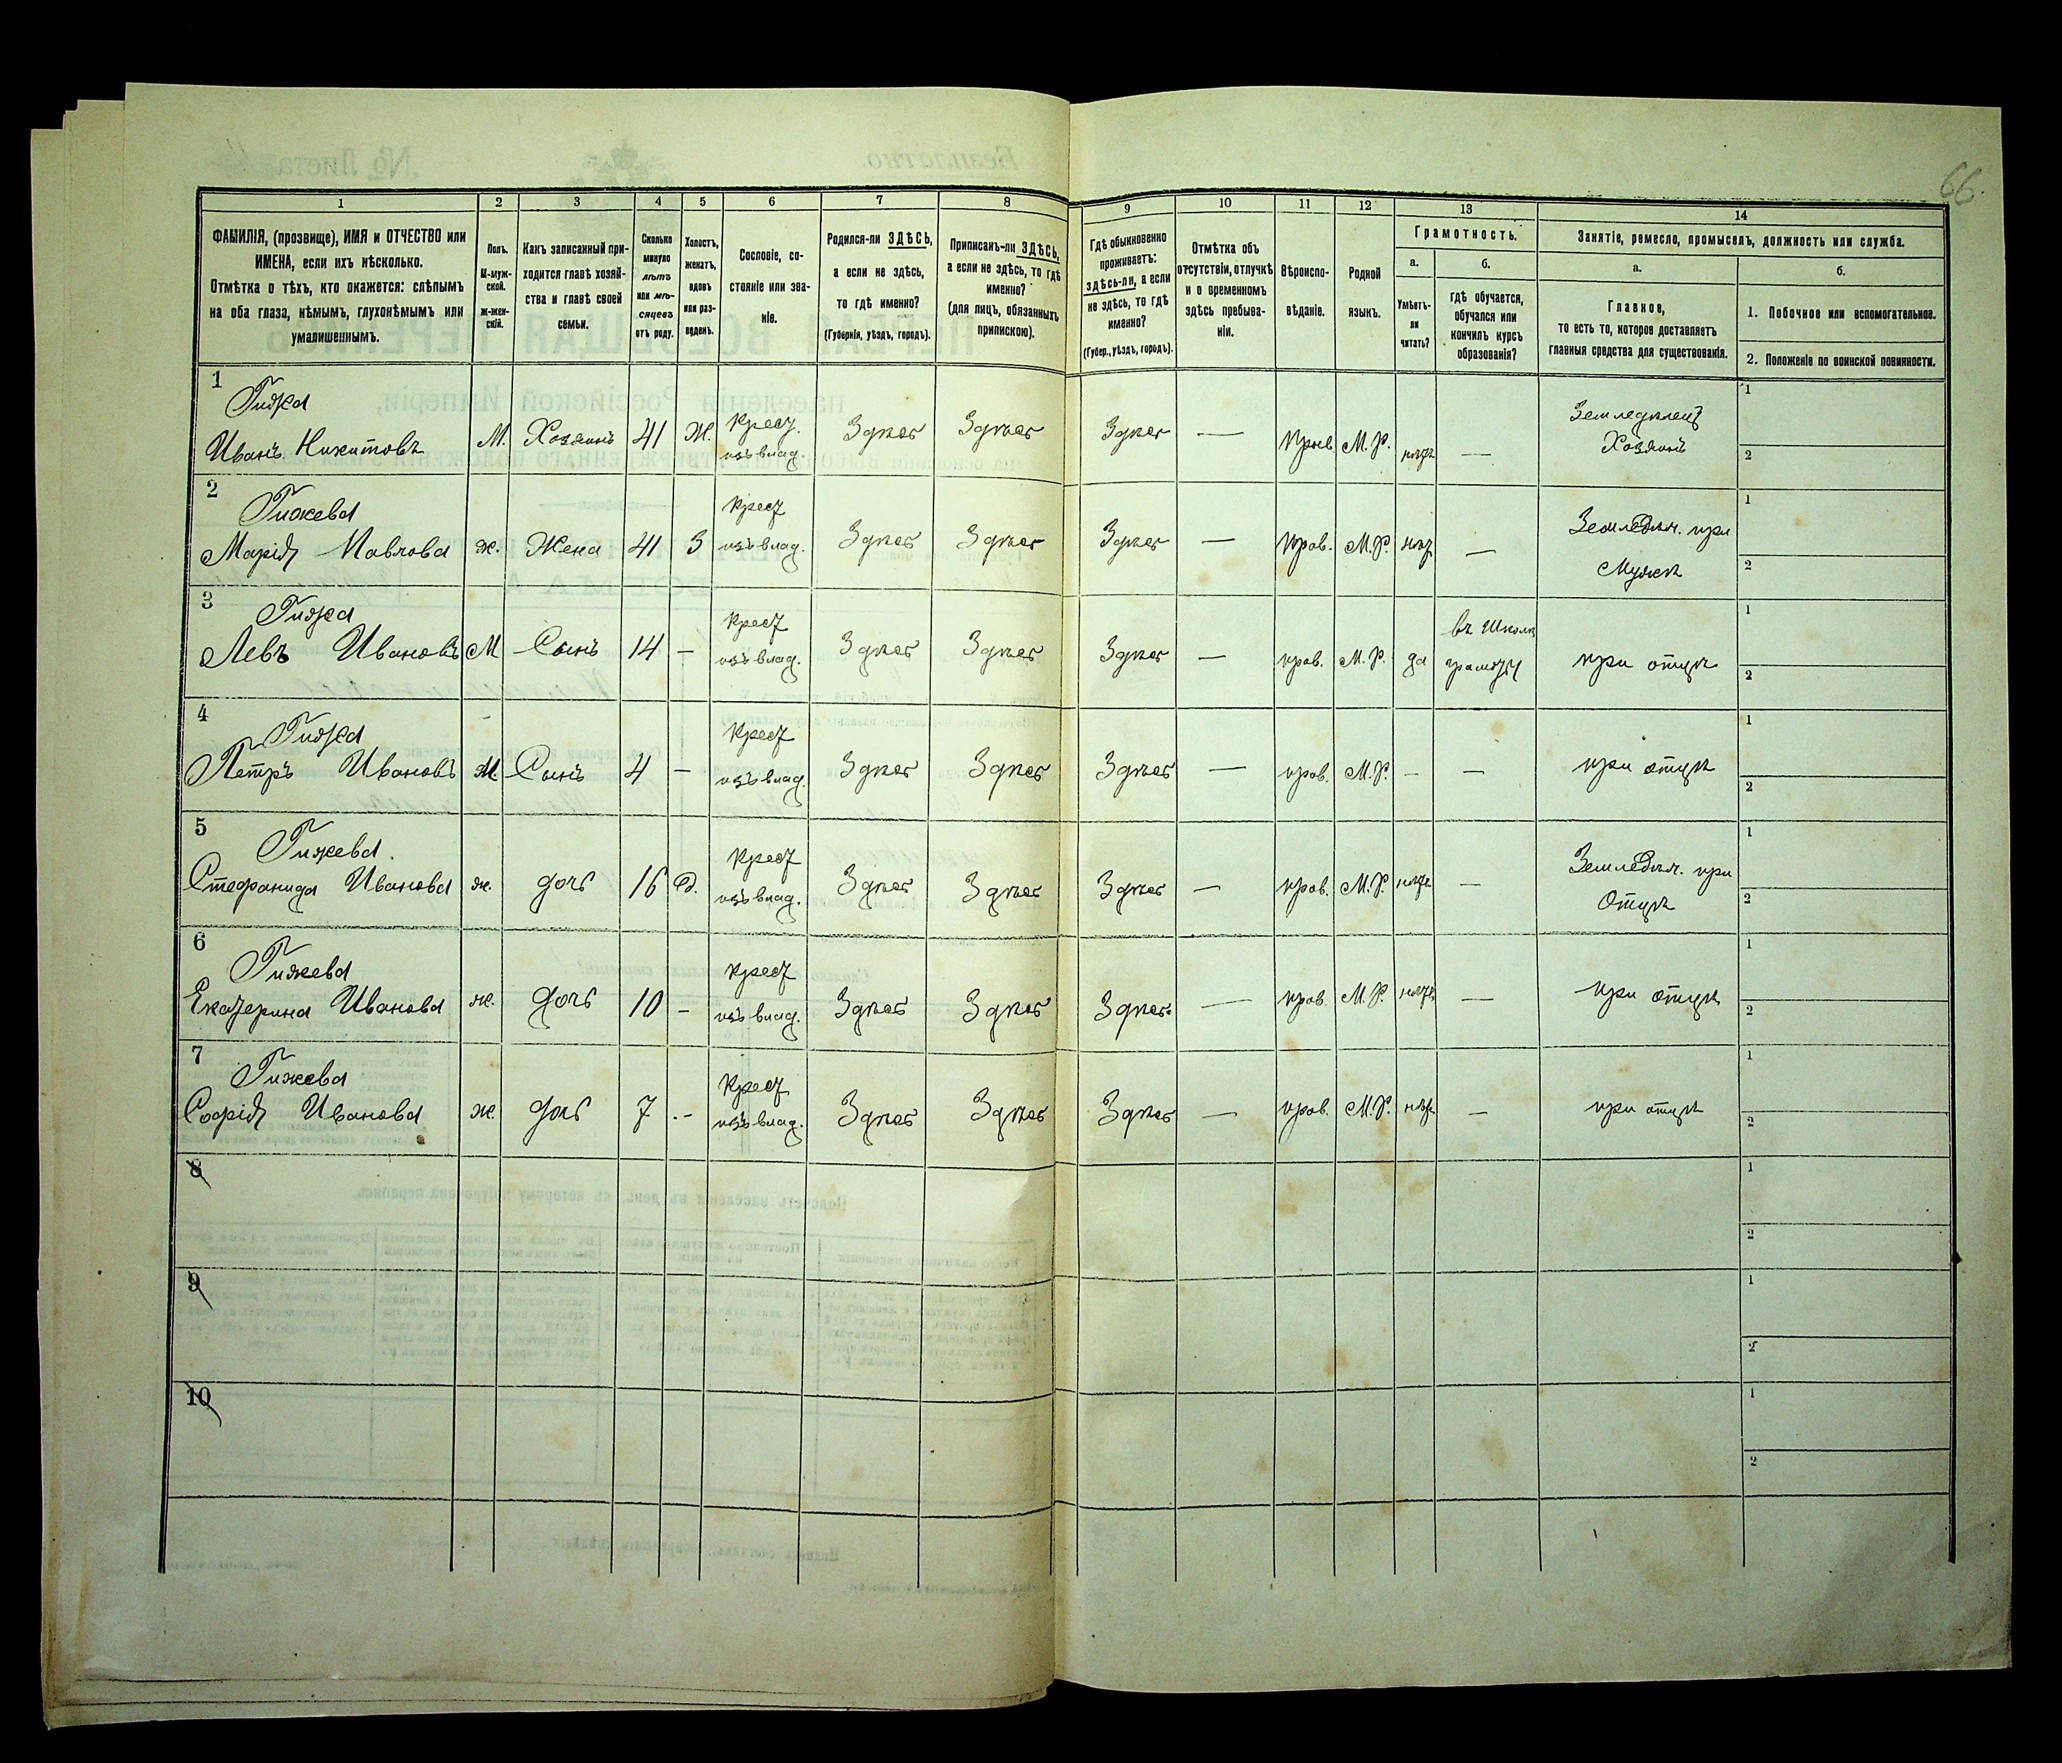 66.
1
2
3
4
5
6
7
8
9
10
11
12
13
14
ФАМИЛІЯ, (прозвище), ИМЯ и ОТЧЕСТВО или
ИМЕНА, если ихъ нѣсколько.
Отмѣтка о тѣхъ, кто окажется: слѣпымъ
на оба глаза, нѣмымъ, глухонѣмымъ или
умалишеннымъ.
Полъ.
М-муж-
ской.
Ж-жен-
скій.
Какъ записанный при-
ходится главѣ хозяй-
ства и главѣ своей
семьи.
Сколько
минуло
лѣтъ
или мѣ-
сяцевъ
отъ роду.
Холостъ,
женатъ,
вдовъ
или раз-
веденъ.
Сословіе, со-
стояніе или зва-
ніе.
Родился-ли ЗДѢСЬ,
а если не здѣсь,
то гдѣ именно?
(Губернія, уѣздъ, городъ).
Приписанъ-ли ЗДѢСЬ,
а если не здѣсь, то гдѣ
именно?
(для лицъ, обязанныхъ
припискою).
Гдѣ обыкновенно
проживаетъ:
здѣсь-ли, а если
не здѣсь, то гдѣ
именно?
(Губер., уѣздъ, городъ).
Отмѣтка объ
отсутствіи, отлучкѣ
и о временномъ
здѣсь пребыва-
ніи.
Вѣроиспо-
вѣданіе.
Родной
языкъ.
Грамотность.
а.
Умѣетъ-
ли
читать?
б.
гдѣ обучается,
обучался или
кончилъ курсъ
образованія?
Занятіе, ремесло, промыселъ, должность или служба.
а.
Главное,
то есть то, которое доставляетъ
главныя средства для существованія.
б.
1. Побочное или вспомогательное.
2. Положеніе по воинской повинности.
1
Гижа
Иванъ Никитовъ М. Хозяинъ 41 Ж. Крест. изъ влад. Здѣсь Здѣсь Здѣсь — Прав. М. Р. нѣтъ — Земледѣлецъ Хозяинъ
1
2
2
Гижева
Марія Павлова ж. Жена 41 З Крест изъ влад. Здѣсь Здѣсь Здѣсь — Прав. М. Р. нѣтъ — Земледѣл. при Мужѣ
1
2
3
Гижа
Левъ Ивановъ М Сынъ 14 — Крест изъ влад. Здѣсь Здѣсь Здѣсь — прав. М. Р. да въ Школѣ грамоты при отцѣ
1
2
4
Гижа
Петръ Ивановъ М. Сынъ 4 — Крест изъ влад. Здѣсь Здѣсь Здѣсь — прав. М. Р. — — при отцѣ
1
2
5
Гижева.
Стефанида Иванова ж. дочь 16 Д. Крест изъ влад. Здѣсь Здѣсь Здѣсь — прав. М. Р. нѣтъ — Земледѣл. при Отцѣ
1
2
6
Гижева
Екатерина Иванова ж. дочь 10 — Крест изъ влад. Здѣсь Здѣсь Здѣсь — прав. М. Р. нѣтъ — при отцѣ
1
2
7
Гижева
Софія Иванова ж. дочь 7 — Крест изъ влад. Здѣсь Здѣсь Здѣсь — прав. М. Р. нѣтъ — при отцѣ
1
2
8
1
2
9
1
2
10
1
2